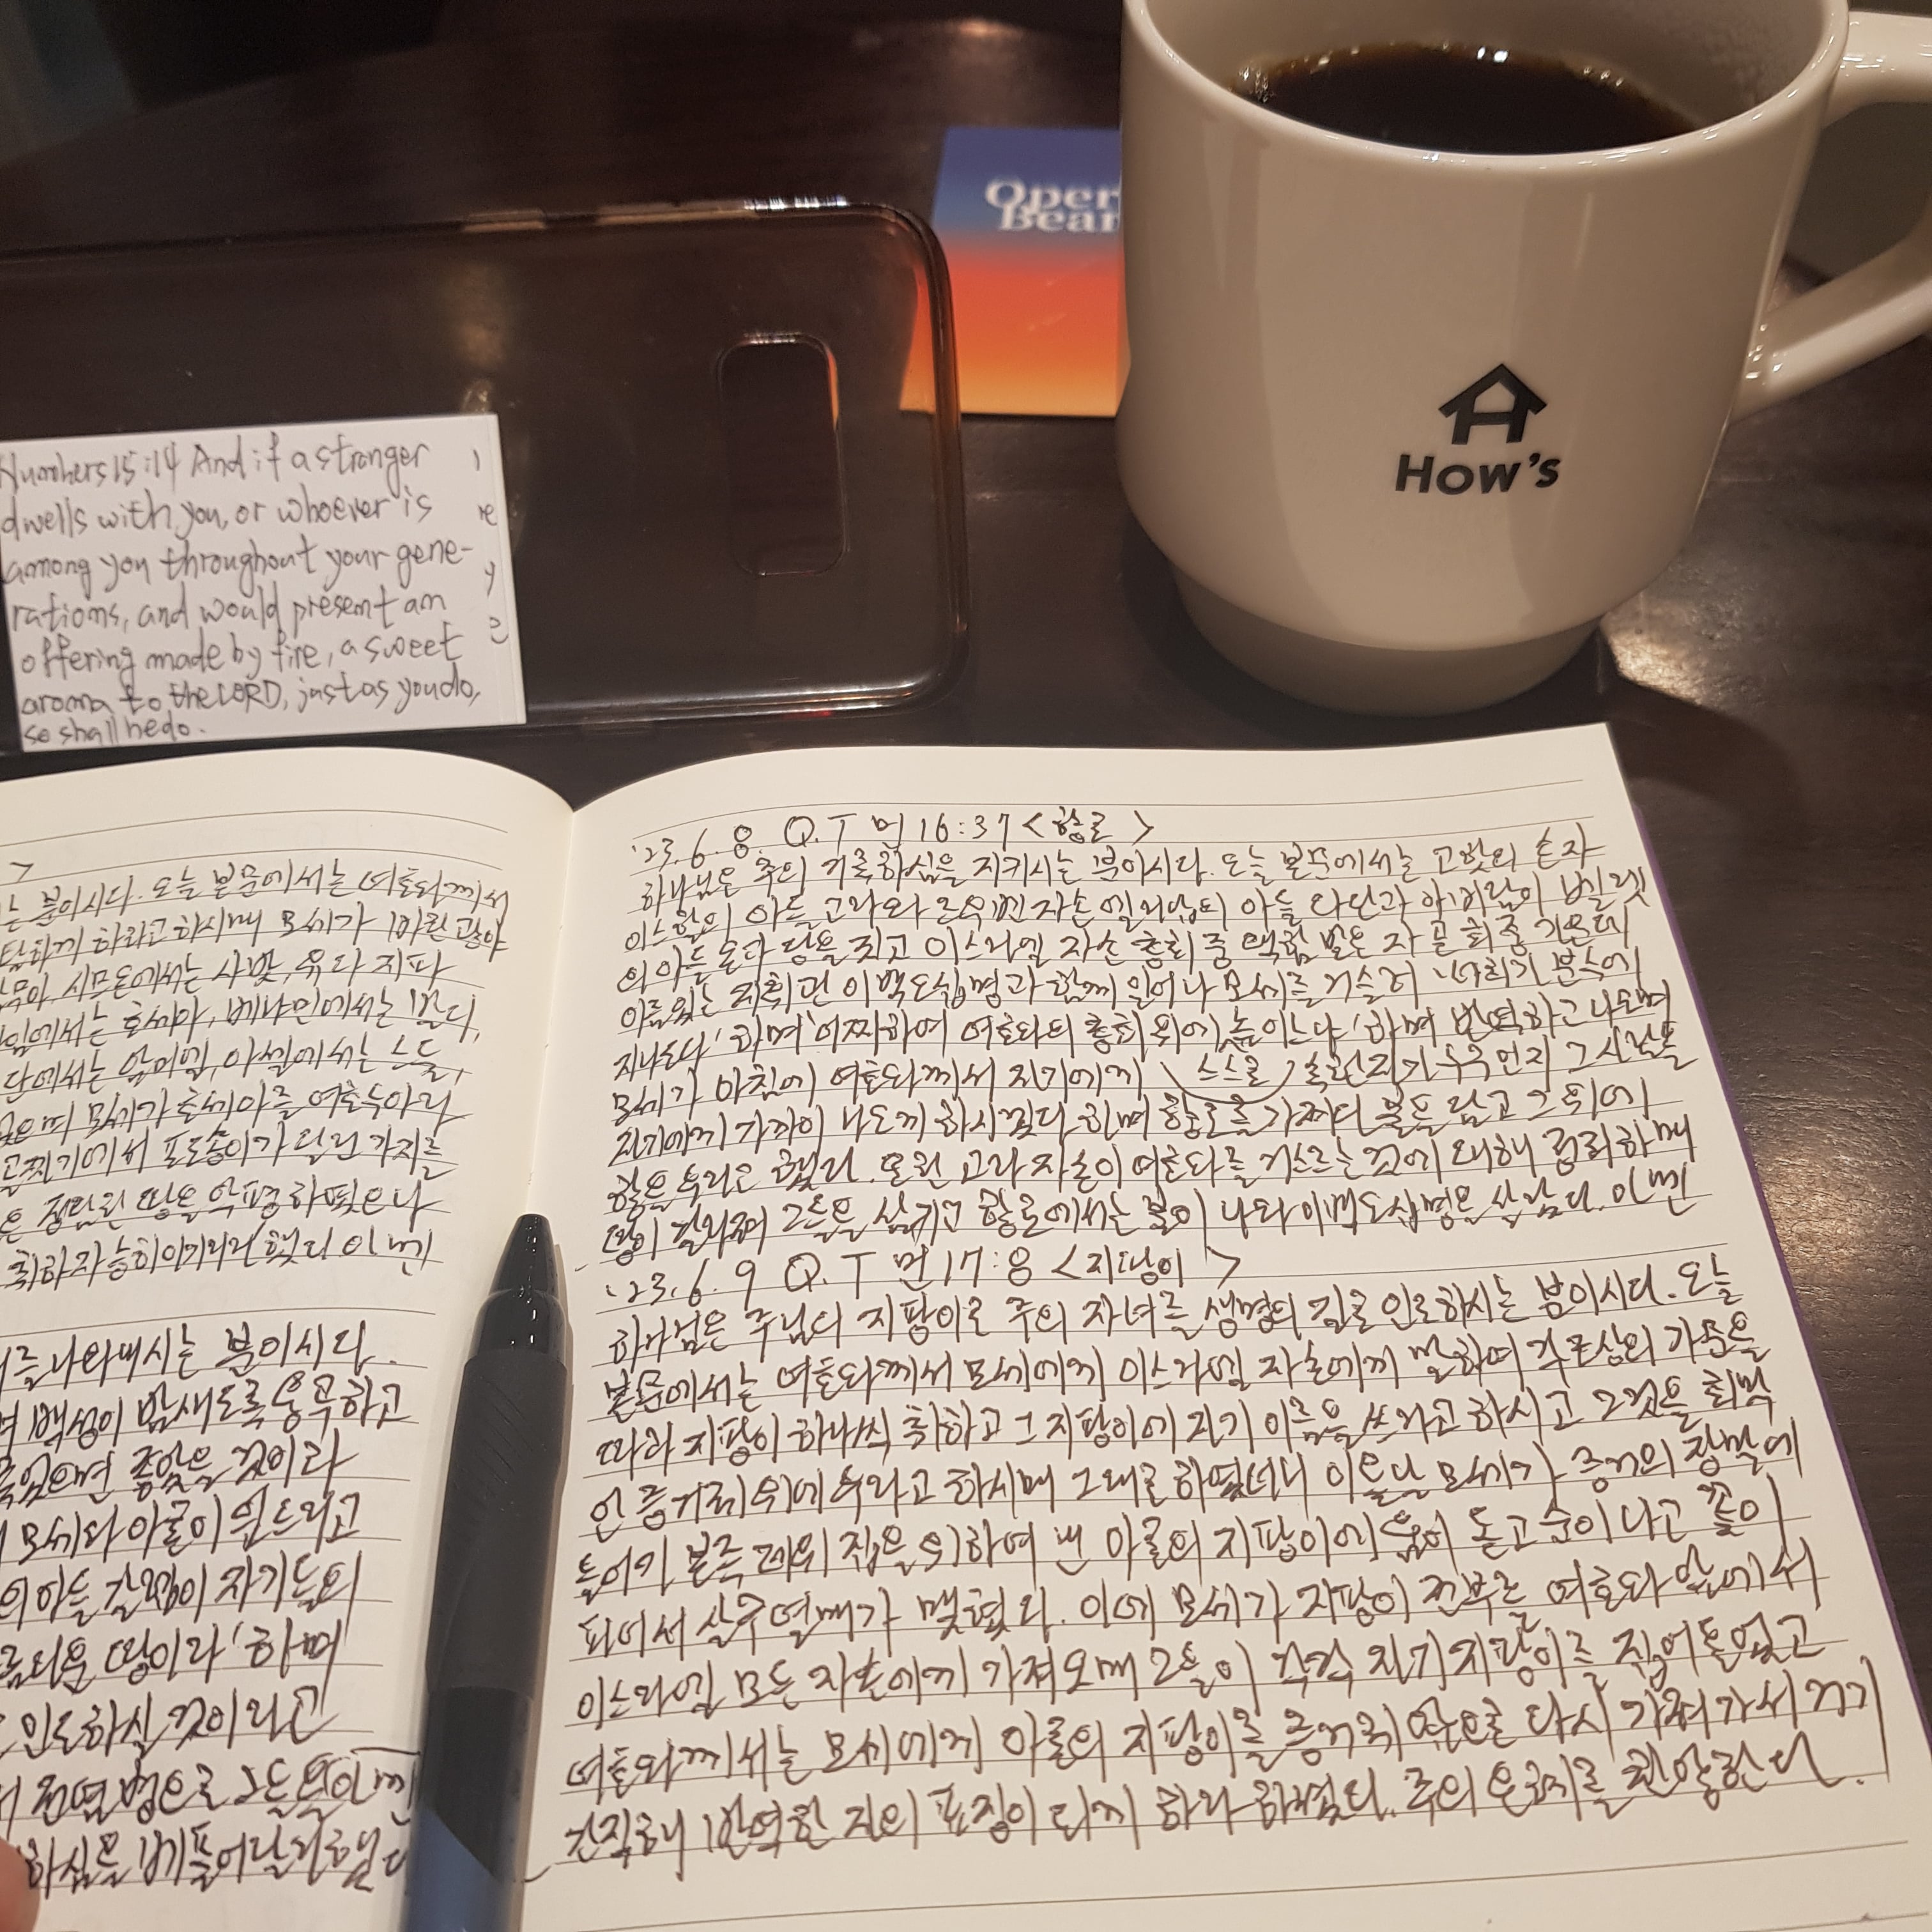 Oper
Bear
How's
Numbers 15:14 And if a stranger
dwells with you, or whoever is
among you throughout your gene-
rations, and would present an
offering made by fire, a sweet
aroma to the LORD, just as you do,
so shall he do.
re
y
는 분이시다. 오늘 본문에서는 여호와께서
탐하게 하라고 하시매 모세가 바란 광야
시므온에서는 사밧, 유다 지파
에서는 호세아, 베냐민에서는 발디,
단에서는 암미엘, 아셀에서는 스둘,
모세가 호세아를 여호수아라
골짜기에서 포도송이가 달린 가지를
정탐한 땅을 악평하였으나
취하자 능히 이기리라 했다 아멘
나와내시는 분이시다.
백성이 밤새도록 통곡하고
죽었으면 좋았을 것이라
모세와 아론이 엎드리고
의 아들 갈렙이 자기들의
아름다운 땅이라' 하며
인도하실 것이라고
전염병으로
하심을 베풀어
'23. 6. 8. Q.T 민 16:37 <향로>
하나님은 주의 거룩하심을 지키시는 분이시다. 오늘 본문에서는 고핫의 손자
이스할의 아들 고라와 르우벤 자손 엘리압의 아들 다단과 아비람이 벨렛
의 아들 온과 당을 짓고 이스라엘 자손 총회 중 택함 받은 자 곧 회중 가운데
이름있는 지휘관 이백오십명과 함께 일어나 모세를 거슬러 '너희가 분수에
지나도다' 하며 '어찌하여 여호와의 총회 위에 높이느냐' 하며 반역하고 나오며
모세가 아침에 여호와께서 자기에게 속한 자가 누구인지 그 사람을
자기에게 가까이 나오게 하시겠다 하며 향로를 가져다 불을 담고 그 위에
향을 두라고 했다. 모인 고라 자손이 여호와를 거스르는 것에 대해 정죄하매
땅이 갈라져 그들을 삼키고 향로에서는 불이 나와 이백오십명을 살랐다. 아멘
'23. 6. 9 Q.T 민 17:8 <지팡이>
하나님은 주님의 지팡이로 주의 자녀를 생명의 길로 인도하시는 분이시다. 오늘
본문에서는 여호와께서 모세에게 이스라엘 자손에게 말하여 각 조상의 가문을
따라 지팡이 하나씩 취하고 그 지팡이에 각기 이름을 쓰라고 하시고 그것을 회막
안 증거궤 위에 두라고 하시매 그대로 하였더니 이튿날 모세가 증거의 장막에
들어가 본즉 레위 집을 위하여 낸 아론의 지팡이에 움이 돋고 순이 나고 꽃이
피어서 살구 열매가 맺혔다. 이에 모세가 지팡이 전부를 여호와 앞에서
이스라엘 모든 자손에게 가져오매 그들이 각각 자기 지팡이를 집어들었고
여호와께서는 모세에게 아론의 지팡이를 증거궤 앞으로 다시 가져가서 거기
간직하여 반역한 자의 표징이 되게 하라 하셨다. 주의 은혜를 찬양한다.